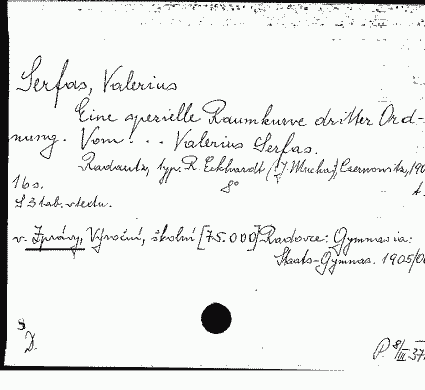 Serfas, Valerius
Eine spezielle Raumkurve dritter Ord-
nung. Vom . . . Valerius Serfas.
Radautz, typ. R. Eckhardt (J. Mucha), Czernowitz, 190
8°
16 s.
S 3 tab. vzadu.
v. Zprávy, Výroční, školní [75.000] Radovce: Gymnasia:
Staats-Gymnas. 1905/06
8
D.
P 8/III 37